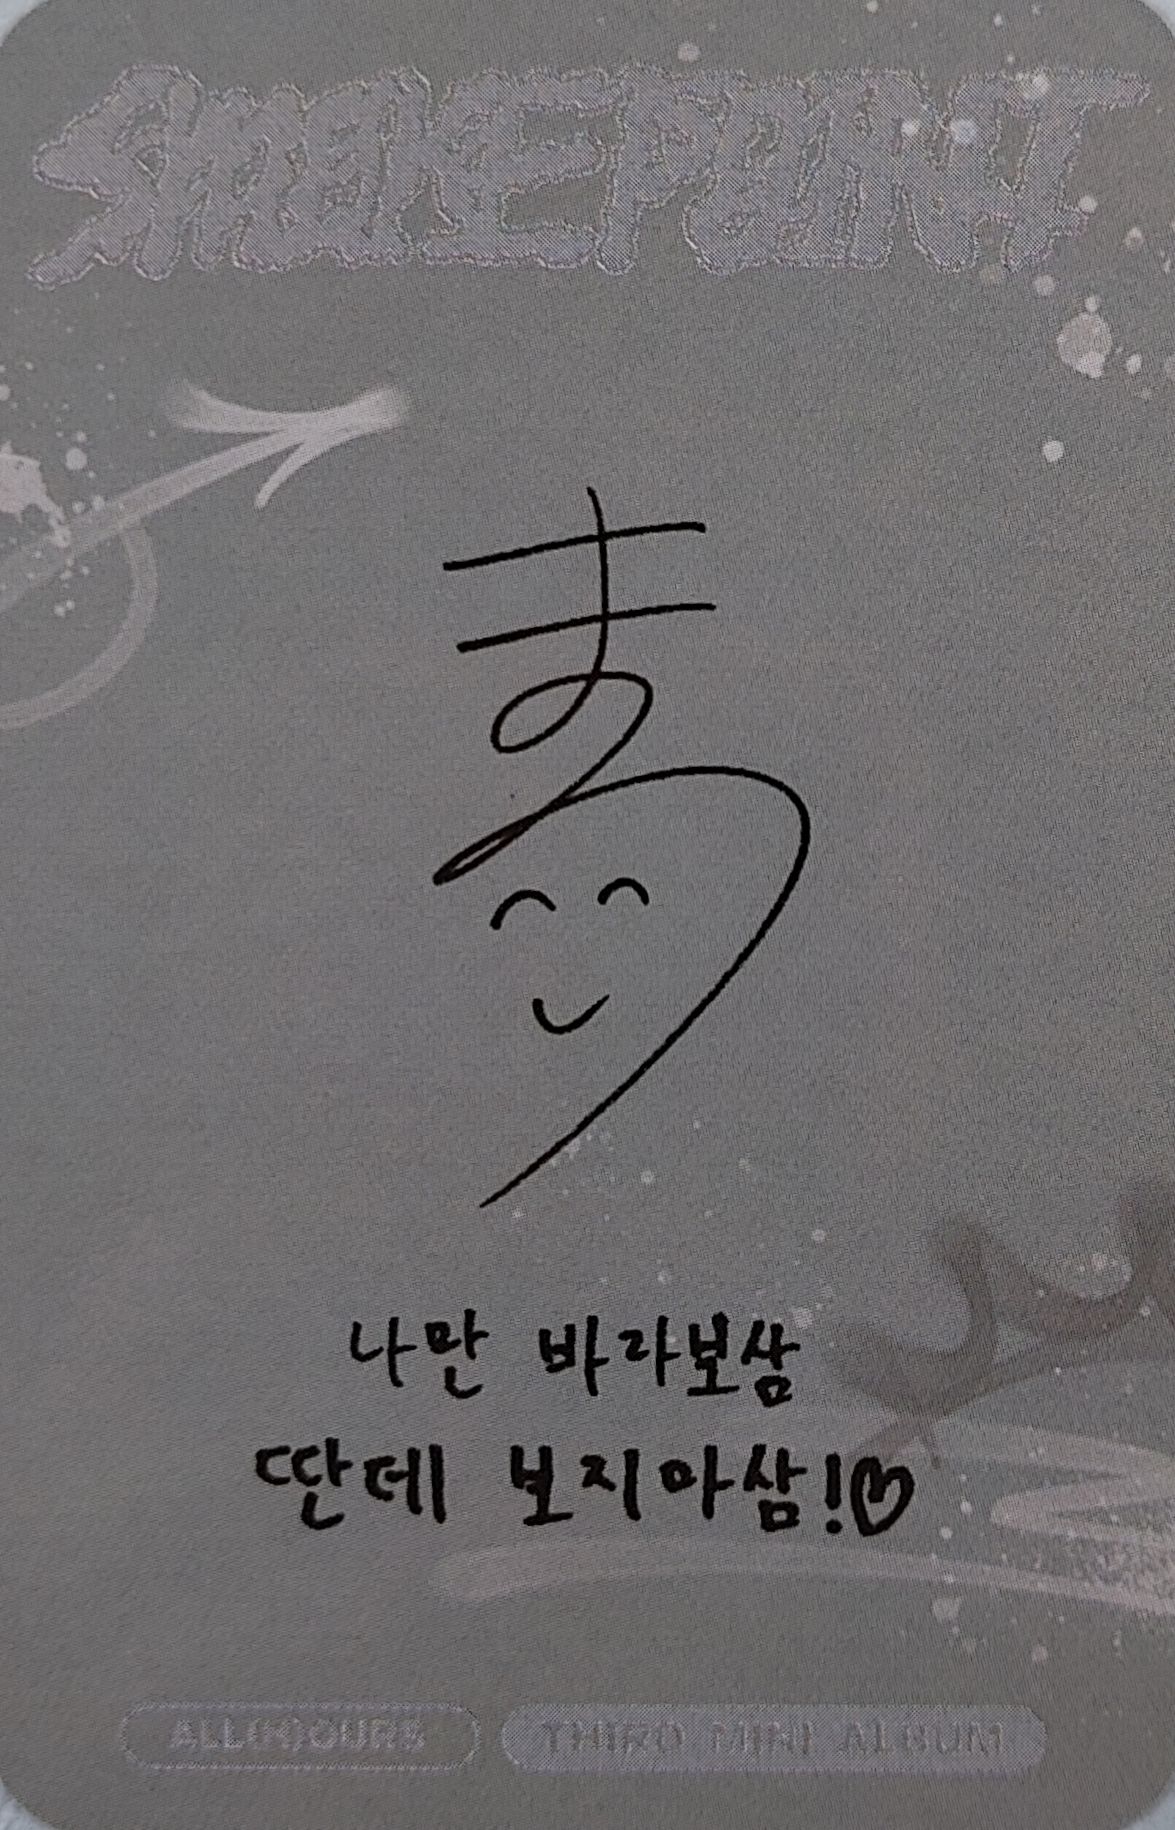 SMOKE POINT
나만 바라보삼
딴데 보지마삼!♡
ALL(H)OURS
THIRD MINI ALBUM